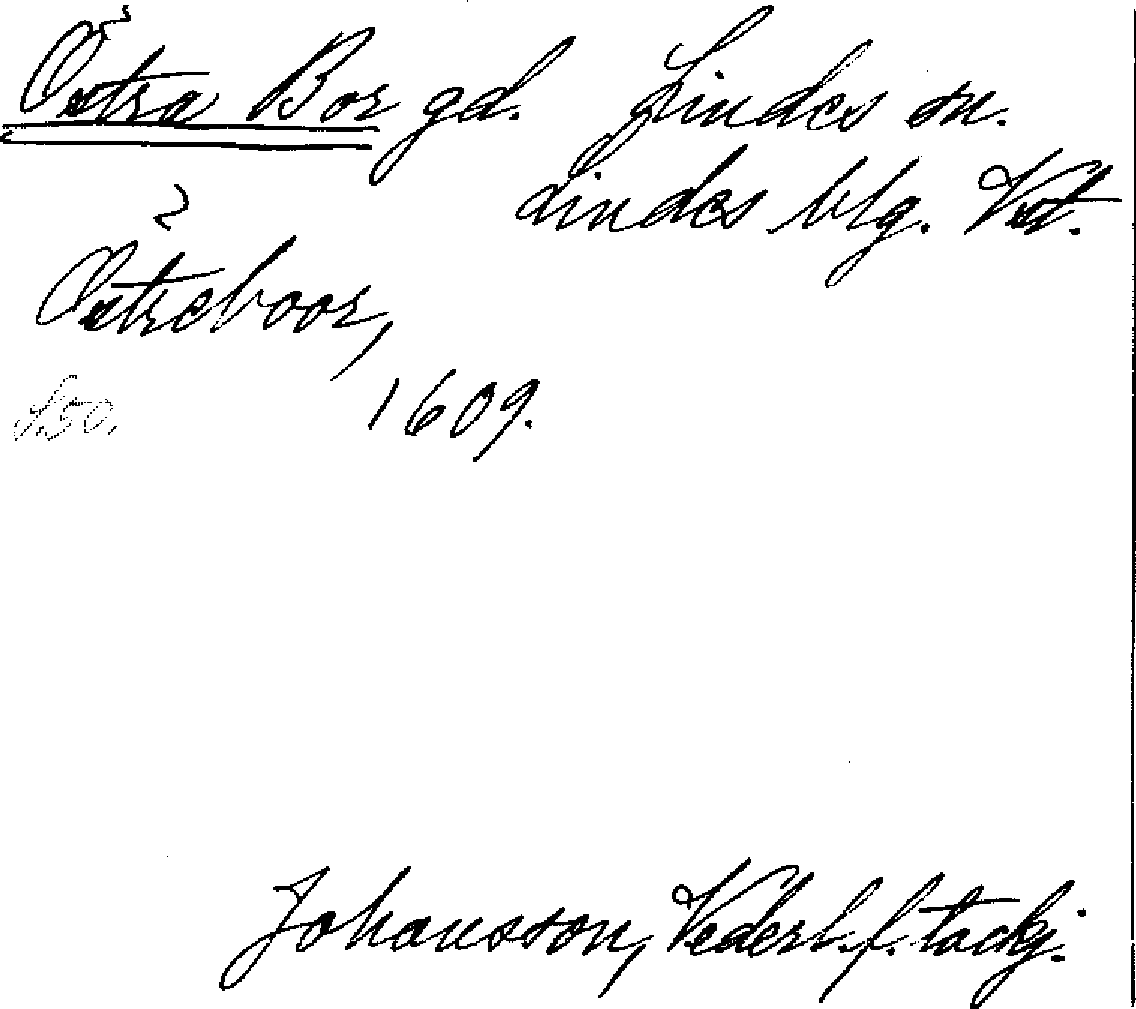 Östra Bor gd. Lindes sn.
Lindes blg. Vstl.
Östreboor,
1609.
s. 50.
Johansson, Vederl. f. tackj.